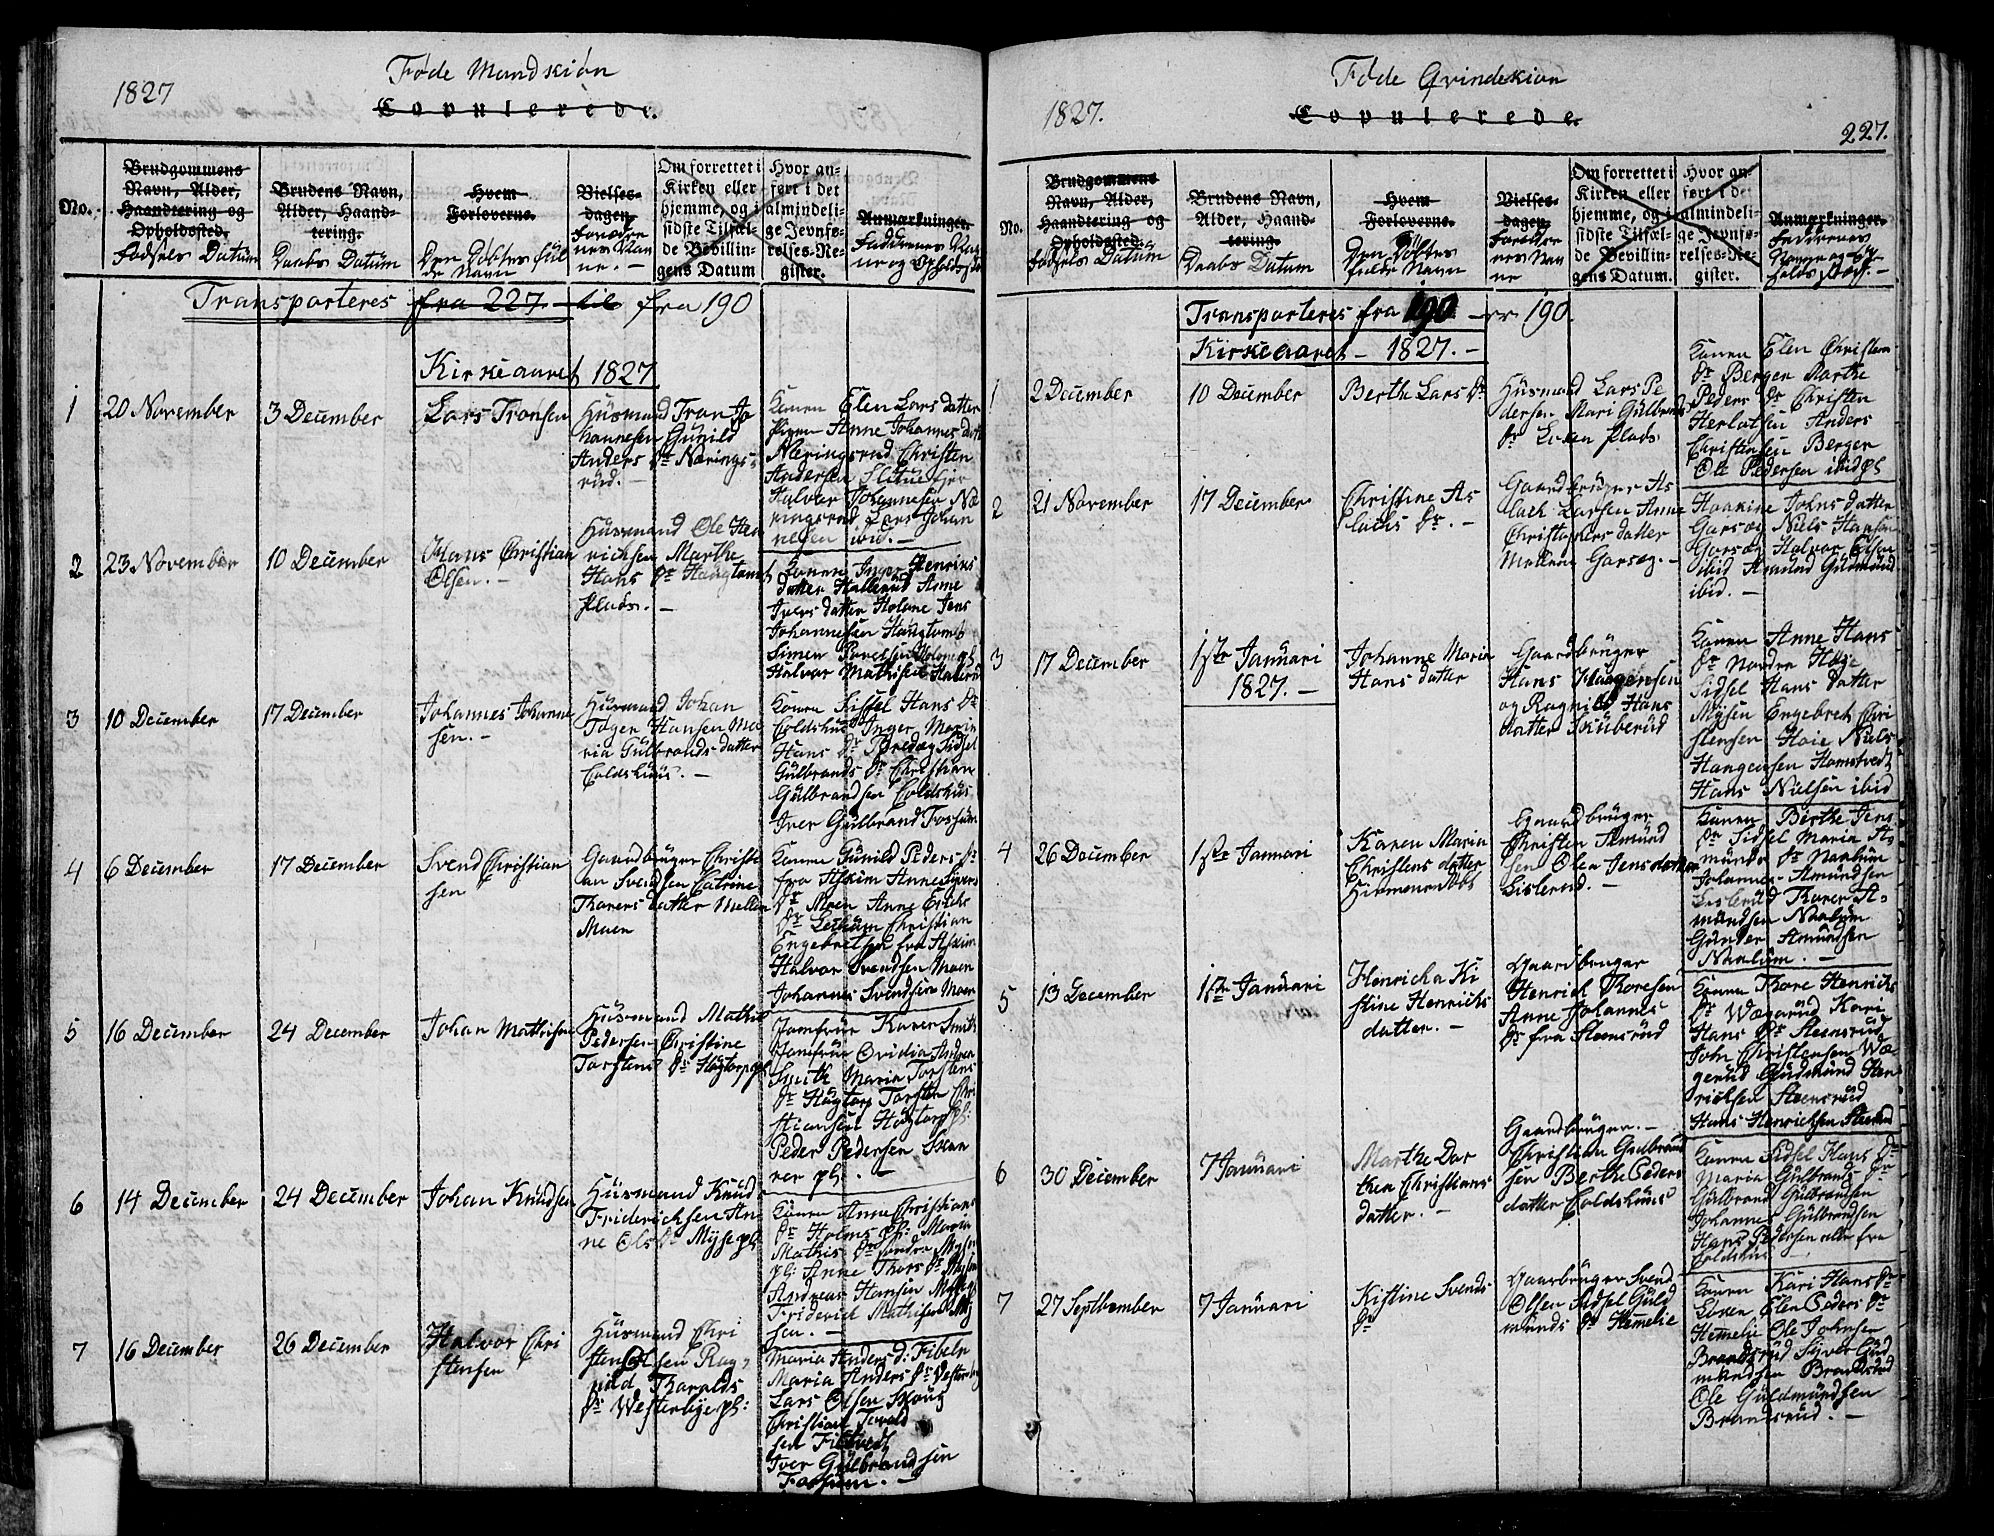 1827
Føde Mandskiøn
Copulerede.
No.
Brudgommens Navn, Alder, Haandtering og Opholdssted.
Fødsels Datum
Brudens Navn, Alder, Haandtering.
Daabs Datum
Hvem Forloverne.
Den Døbtes fulde Navn
Vielsesdagen.
Forældrenes Navne. -
Om forrettet i Kirken eller hjemme, og i sidste Tilfælde Bevillingens Datum
Hvor anført i det almindelige Jevnførelses-Register.
Anmærkninger.
Faddernes Navne og Opholdssted
Transporteres fra 227 til fra 190
Kirkeaaret 1827
1
20 November
3 December
Lars Tronsen
Husmand Tron Jo
hannesen Gunild
Anders Dr Nærings
rud. -
Konen Elen Lars datter
Pigen Anne Johannes datt
Næringsrud Christen
Andersen Slitu
Halvor Johannesen Næ
ringsrud Lars Johan
nesen ibid. -
2
23 November
10 December
Hans Christian
Olsen. -
Husmand Ole Hen
richsen Marthe
Hans Dr Haugtomt
Plads. -
Konen Inger Henriks
datter Hallerud Anne
Ivers datter Holane Jens
Johannesen Haugtomt
Simen
Halvor Mathisen Hallerud
3
10 December
17 December
Johannes Johanne
sen. -
Husmand Johan
Tøger Hansen Ma
ria Gulbrands datter
Coldshuus. -
Konen Sissel Hans Dr
Coldshus Inger Marie
Hans Dr Sidsel
Gulbrands Dr Christian
Gulbrandsen Coldshus
Iver Gulbrand Forsum
4
6 December
17 December
Svend Christian
sen
Gaardbruger Christi
an Svendsen Catrine
Thorers datter Mellem
Moen
Konen Gunild Peders Dr
fra Askim Anne Sivers
Dr Moen Anne Erichs
Dr Christian
Engebretsen fra Askim
Halvor Svendsen Moen
Johannes Svendsen Moen
5
16 December
24 December
Johan Mathisen
Husmand Mathis
Pedersen Christine
Torstens Dr Hagtorp pl
Jomfrue Karen Smith
Jomfrue Ovidia Andrea
Smith Maria Torstens
Dr Hagtorp Torsten Chri
stiansen Hagtorp pl:
Peder Pedersen Skan
ner pl: -
6
14 December
24 December
Johan Knudsen
Husmand Knud
Friderichsen An
ne Ols Dr Myse pl:
Konen Anne Christians
Dr Holms pl: Maria
Mathis Dr Søndre Mysen
pl: Anne Thors Dr Mysen
Andreas Hansen
Friderich Mathisen My
sen. -
7
16 December
26 December
Halvor Chri
stensen
Husmand Chri
sten Olsen Rag
nild Tharalds
Dr Westerbye pl:
Maria Anders d:
Maria Anders Dr
Lars Olsen Skoug
Christian
sen
Iver Gulbrandsen
Forsum. -
1827.
Føde Qvindekiøn
Copulerede.
227.
No.
Brudgommens Navn, Alder, Haandtering og Opholdssted.
Fødsels Datum
Brudens Navn, Alder, Haandtering.
Daabs Datum
Hvem Forloverne.
Den Døbtes fulde Navn
Vielsesdagen.
Forældrenes Navne
Om forrettet i Kirken eller hjemme, og i sidste Tilfælde Bevillingens Datum.
Hvor anført i det almindelige Jevnførelses-Register.
Anmærkninger.
Faddernes Navne og Opholds Sted. -
Transporteres fra 190 190.
Kirkeaaret - 1827. -
1
2 December
10 December
Berthe Lars Dr
Husmand Lars Pe
dersen Mari Gulbrands
Dr Plads
Konen Elen Christens
Dr Bergen Marthe
Peders Dr Christen
Anders
Christensen Bergen
Ole Pedersen ibid pl
2
21 November
17 December
Christine As
lachs Dr. -
Gaardbruger As
lach Larsen Anne
Christophers datter
Mellem Garseg. -
Haakine Johns datter
Garseg Niels Hansen
Garseg Halvor Olsen
ibid Amund Gudmund
ibid. -
3
17 December
1ste Januari
1827. -
Johanne Maria
Hans datter
Gaardbruger
Hans Haagensen
og Ragnild Hans
datter Skuberud
Konen Anne Hans
Dr Nordre Høie
Sidsel Hans datter
Mysen Engebret Chri
stensen Høie Niels
Haagensen Homstvedt
Hans Nielsen ibid
4
26 December
1ste Januari
Karen Maria
Christens datter
Gaardbruger
Christen Amund
sen Olea Jens datter
Lislerud. -
Konen Berthe Jens
Dr Sidsel Maria A
munds Dr Narlum
Johannes Amundsen
Lislerud Thorer A=
mundsen Narlum
Gunder Amundsen
Narlum. -
5
13 December
1ste Januari
Henricha Ki
stine Henrichs
datter. -
Gaardbruger
Henrich Thoresen
Anne Johannes
Dr fra Steensrud
Konen Thore Henrichs
Dr Wægerud Kari
Hans Dr Steensrud
John Christensen Wæ
gerud Gudmund Hen
richsen Steensrud
Hans Henrichsen Steensrud
6
30 December
7 Januari
Marthe Dor
thea Christians
datter. -
Gaardbruger. -
Christian Gulbrand
sen Berthe Peders
datter Coldshuus
Konen Sidsel Hans Dr
Maria Gulbrands Dr
Gulbrand Gulbrandsen
Johannes Gulbrandsen
Hans Pedersen alle fra
Coldshus -
7
27 September
7 Januari
Kistine Svends
Dr
Gaarbruger Svend
Olsen Sidsel Guld
munds Dr Hemelie
Konen Kari Hans Dr
Elen Peders Dr
Hemelie Ole Johnsen
Brandsrud Syver Gud
mundsen Brandsrud
Ole Guldmundsen
Brandsrud. -